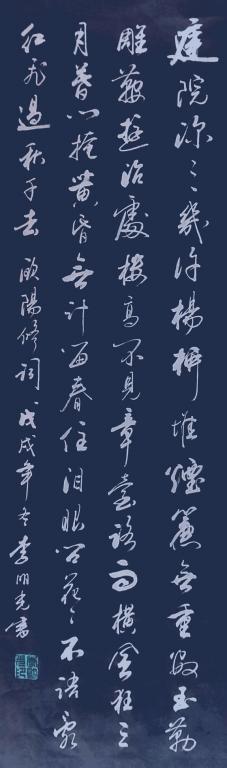 庭院深ヽヽ幾許楊柳堆煙簾無重數玉勒
雕鞍遊冶處樓高不見章臺路雨橫風狂三
月暮門掩黃昏無計留春住泪眼問花ヽ不語亂
紅飛過秋千去 歐陽修詞 戊戌年冬 李明光書